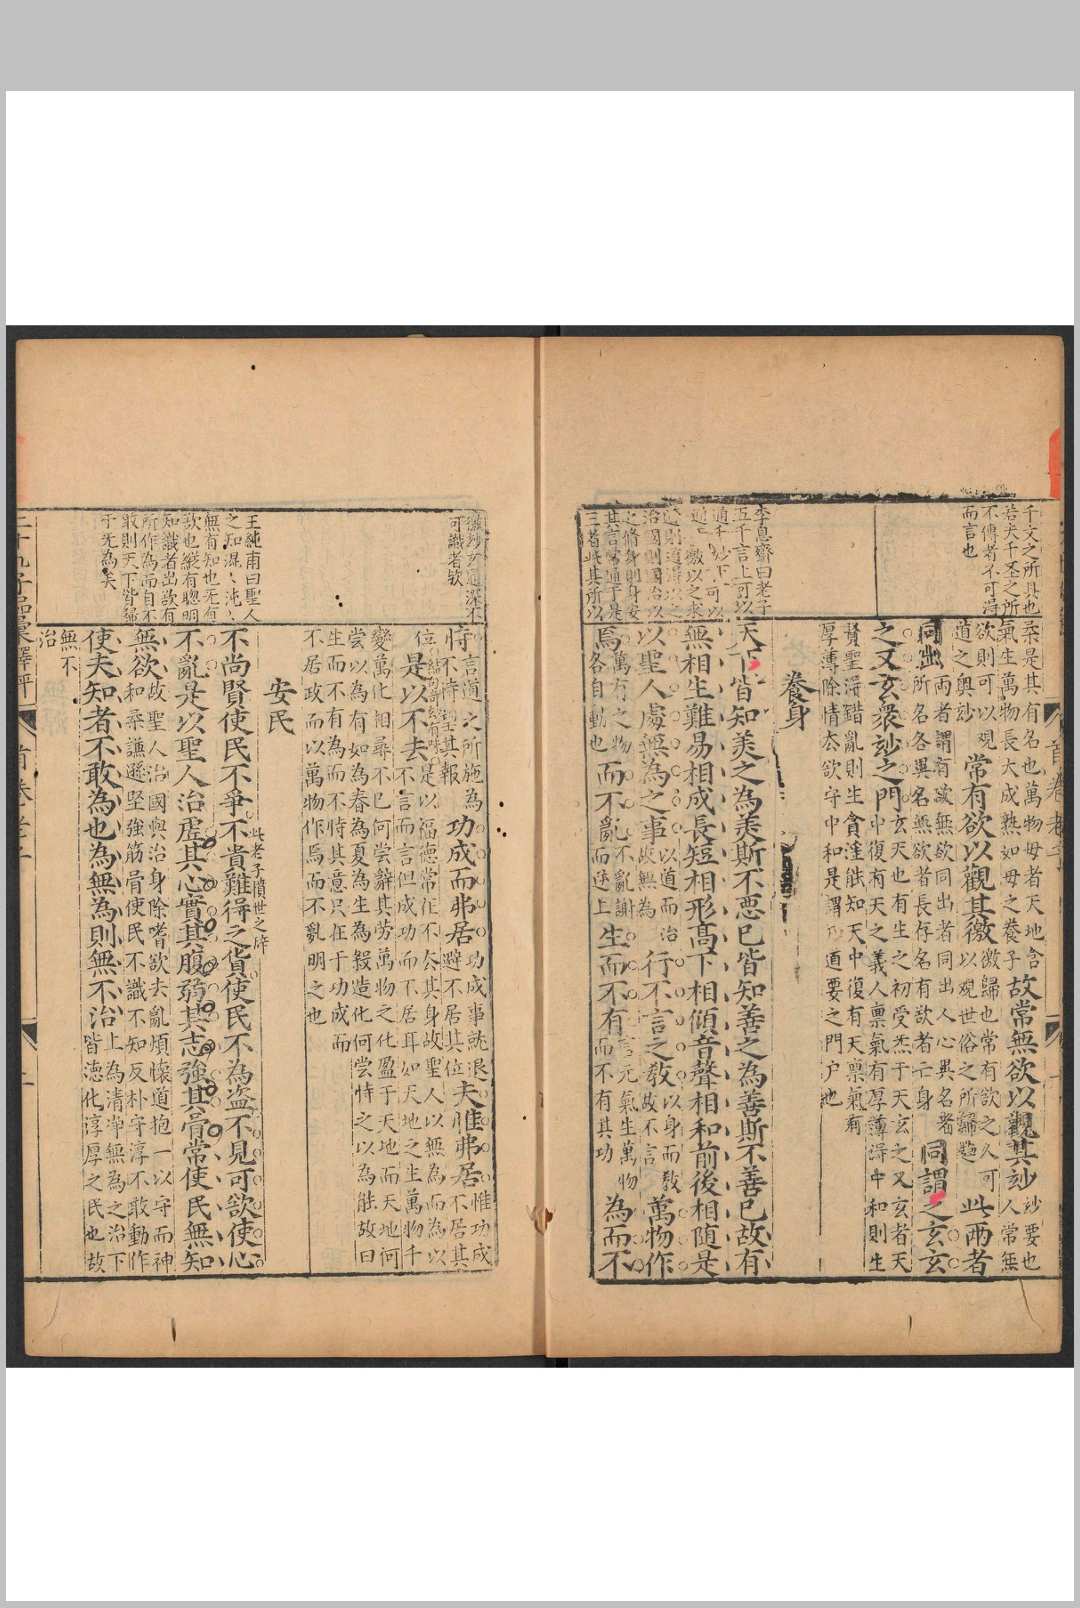 千文之所具也
若夫千圣之所
不傳者不可淂
而言也
柔是其有名也萬物母者天地含
氣生萬物長大成熟如母之養子
故常無欲以觀其妙
妙要也
人常無
欲則可以觀
道之奧妙
常有欲以觀其徼
徼歸也常有欲之久可
以觀世俗之所歸趣
此兩者
同出
兩者謂有欲無欲同出者同出人心異名者
所名各異名無欲者長存名有欲者亡身
同謂之玄玄
之又玄衆妙之門
玄天也有生之初受炁于天玄之又玄者天
中復有天之義人禀氣有厚薄淂中和則生
賢聖淂錯亂則生貪淫能知天中復有天禀氣有
厚薄除情去欲守中和是謂乃道要之門户也
養身
李息齋曰老子
五千言上可以
通
治國則國治以
之脩身則身安
其言常通于是
三者此其所以
天下皆知美之為美斯不惡已皆知善之為善斯不善已故有
無相生難易相成長短相形高下相傾音聲相和前後相隨是
以聖人處無為之事
以道而治
故無為
行不言之敎
以身而敎
故不言
萬物作
焉
萬有之物
各自動也
而不亂
不亂謝
而逆上
生而不有
言元氣生萬物
而不有其功
為而不
微妙玄通深不
可識者欤
恃
言道之所施為
不恃望其報
功成而弗居
功成事就退
避不居其位
夫惟弗居
惟功成
不居其
位
是以不去
是以福德常在不去其身故聖人以無為而為以
不言而言但成功而不居耳如天地之生萬物千
變萬化相尋不已何尝辭其劳萬物之化盈于天地而天地何
尝以為有如為春為夏為生為殺造化何尝恃之以為能故曰
生而不有為而不恃其意只在于功成而
不居政而以萬物作焉而不亂明之也
安民
王純甫曰聖人
之知混〻沌〻
無有知也无有
欲也緃有聰明
知識者出欲有
所作為而自不
敢則天下皆歸
于无為矣
此老子憤世之辞
不尚賢使民不爭不貴難得之貨使民不為盗不見可欲使心
不亂是以聖人治虗其心實其腹弱其志強其骨常使民無知
無欲
故聖人治國與治身除嗜欲去亂煩懷道抱一以守而神
和柔謙遜堅強筋骨使民不識不知反朴守淳不敢動作
使夫知者不敢為也為無為則無不治
上為清淨無為之治下
皆德化淳厚之民也故
無不
治